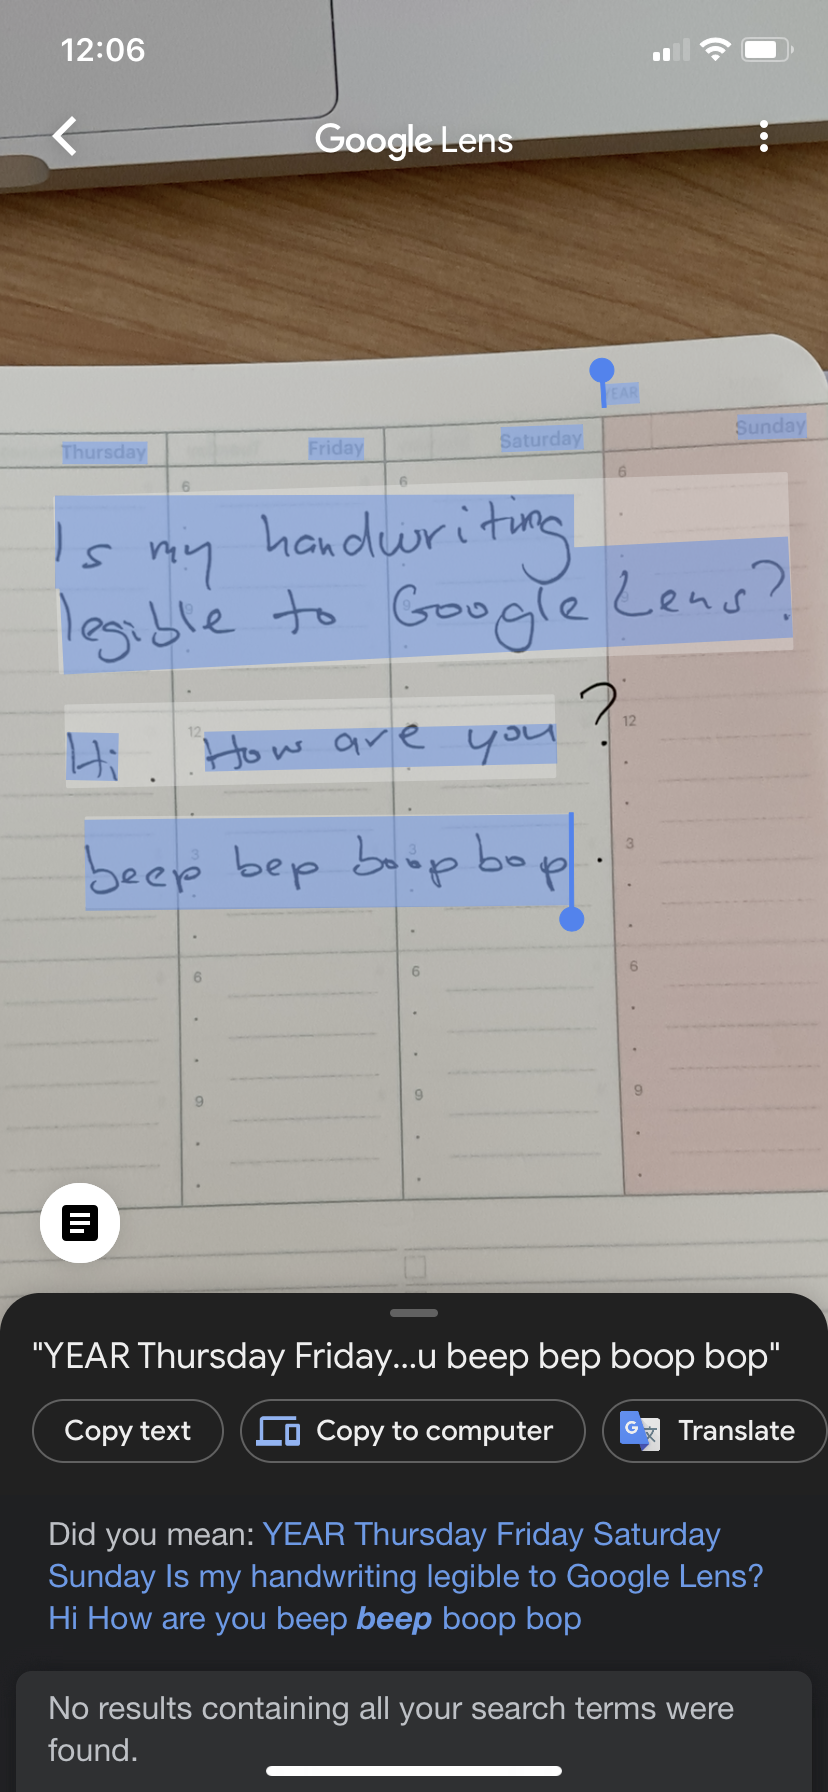 12:06
Google Lens
YEAR
Thursday Friday Saturday Sunday
6 6 6
Is my handwriting
legible to Google Lens?
9 9 9
12 12
Hi. How are you?
3 3 3
beep bep boop bop.
6 6 6
9 9 9
"YEAR Thursday Friday...u beep bep boop bop"
Copy text Copy to computer G Translate
Did you mean: YEAR Thursday Friday Saturday
Sunday Is my handwriting legible to Google Lens?
Hi How are you beep beep boop bop
No results containing all your search terms were
found.